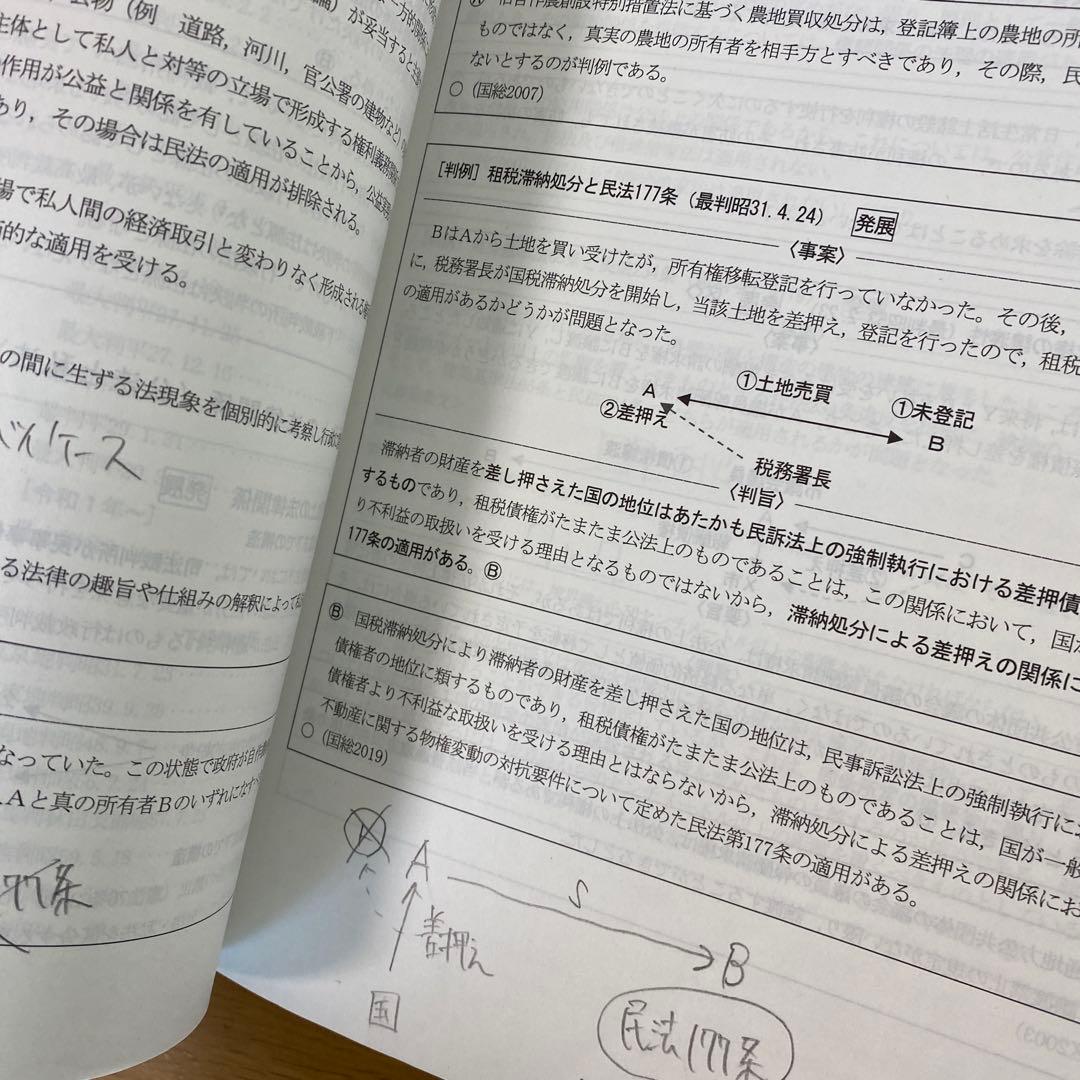 公物（例　道路，河川，官公署の建物など）の
主体として私人と対等の立場で形成する権利義務関係
作用が公益と関係を有していることから，公益実
あり，その場合は民法の適用が排除される。
場で私人間の経済取引と変わりなく形成される
的な適用を受ける。
の間に生ずる法現象を個別的に考察し行政
ケース
る法律の趣旨や仕組みの解釈によって
なっていた。この状態で政府が自作農
Aと真の所有者Bのいずれになす
177条
に基づく農地買収処分は，登記簿上の農地の所
ものではなく，真実の農地の所有者を相手方とすべきであり，その際，民
ないとするのが判例である。
○（国総2007）
［判例］租税滞納処分と民法177条（最判昭31.4.24）　発展
〈事案〉
BはAから土地を買い受けたが，所有権移転登記を行っていなかった。その後，
に，税務署長が国税滞納処分を開始し，当該土地を差押え，登記を行ったので，租税
の適用があるかどうかが問題となった。
①土地売買
A
①未登記
②差押え
B
税務署長
〈判旨〉
滞納者の財産を差し押さえた国の地位はあたかも民訴法上の強制執行における差押債
するものであり，租税債権がたまたま公法上のものであることは，この関係において，国が
り不利益の取扱いを受ける理由となるものではないから，滞納処分による差押えの関係に
177条の適用がある。Ⓑ
Ⓑ　国税滞納処分により滞納者の財産を差し押さえた国の地位は，民事訴訟法上の強制執行に
債権者の地位に類するものであり，租税債権がたまたま公法上のものであることは，国が一般
債権者より不利益な取扱いを受ける理由とはならないから，滞納処分による差押えの関係にお
不動産に関する物権変動の対抗要件について定めた民法第177条の適用がある。
○（国総2019）
A
S
差押え
B
国
民法177条